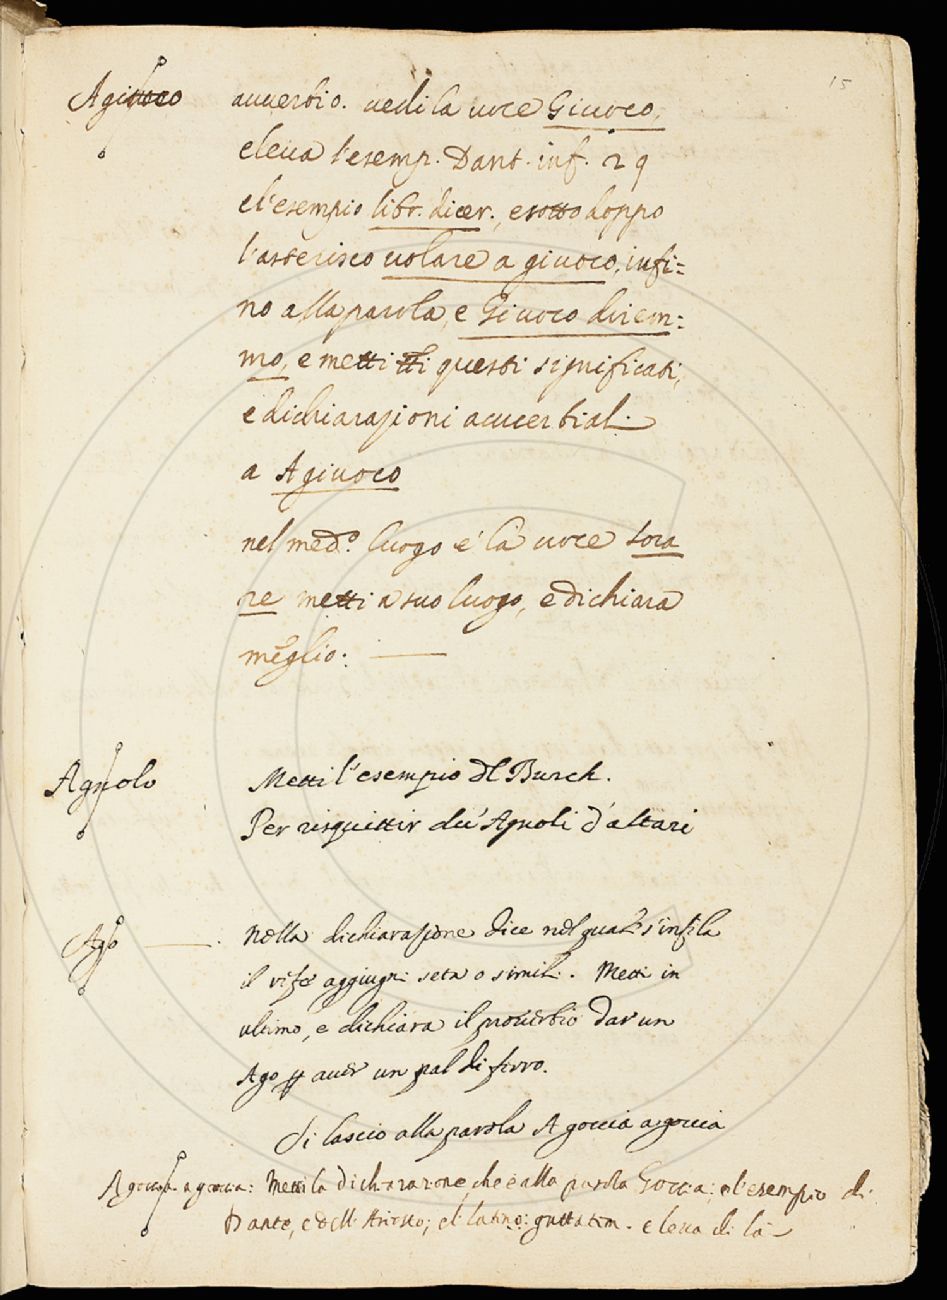 15
Agiuoco auuerbio. uedi la uoce Giuoco,
e leua l'esemp. Dant. inf. 29
e l'esempio libr. dicer., e sotto doppo
l'asterisco uolare a giuoco, infi=
no alla parola, e Giuoco direm=
mo, e metti tti questi significati,
e dichiarazioni auuerbial.
a A giuoco
nel med.o luogo e' la uoce sora
re metti a suo luogo, e dichiara
meglio.
Agnolo Metti l'esempio dl Burch.
Per risquittir du' Agnoli d'altari
Ago Nella dichiarazione dice nel quale s'infila
il refe aggiugni seta o simili. Metti in
ultimo, e dichiara il prouerbio Dar un
Ago p auer un pal di ferro.
Si lascio alla parola A goccia a goccia
A goccia a goccia: Metti la dichiarazione che è alla parola Goccia; e l'esempio di
Dante, e dell'Ariosto; e 'l latino: guttatim. e leua di là